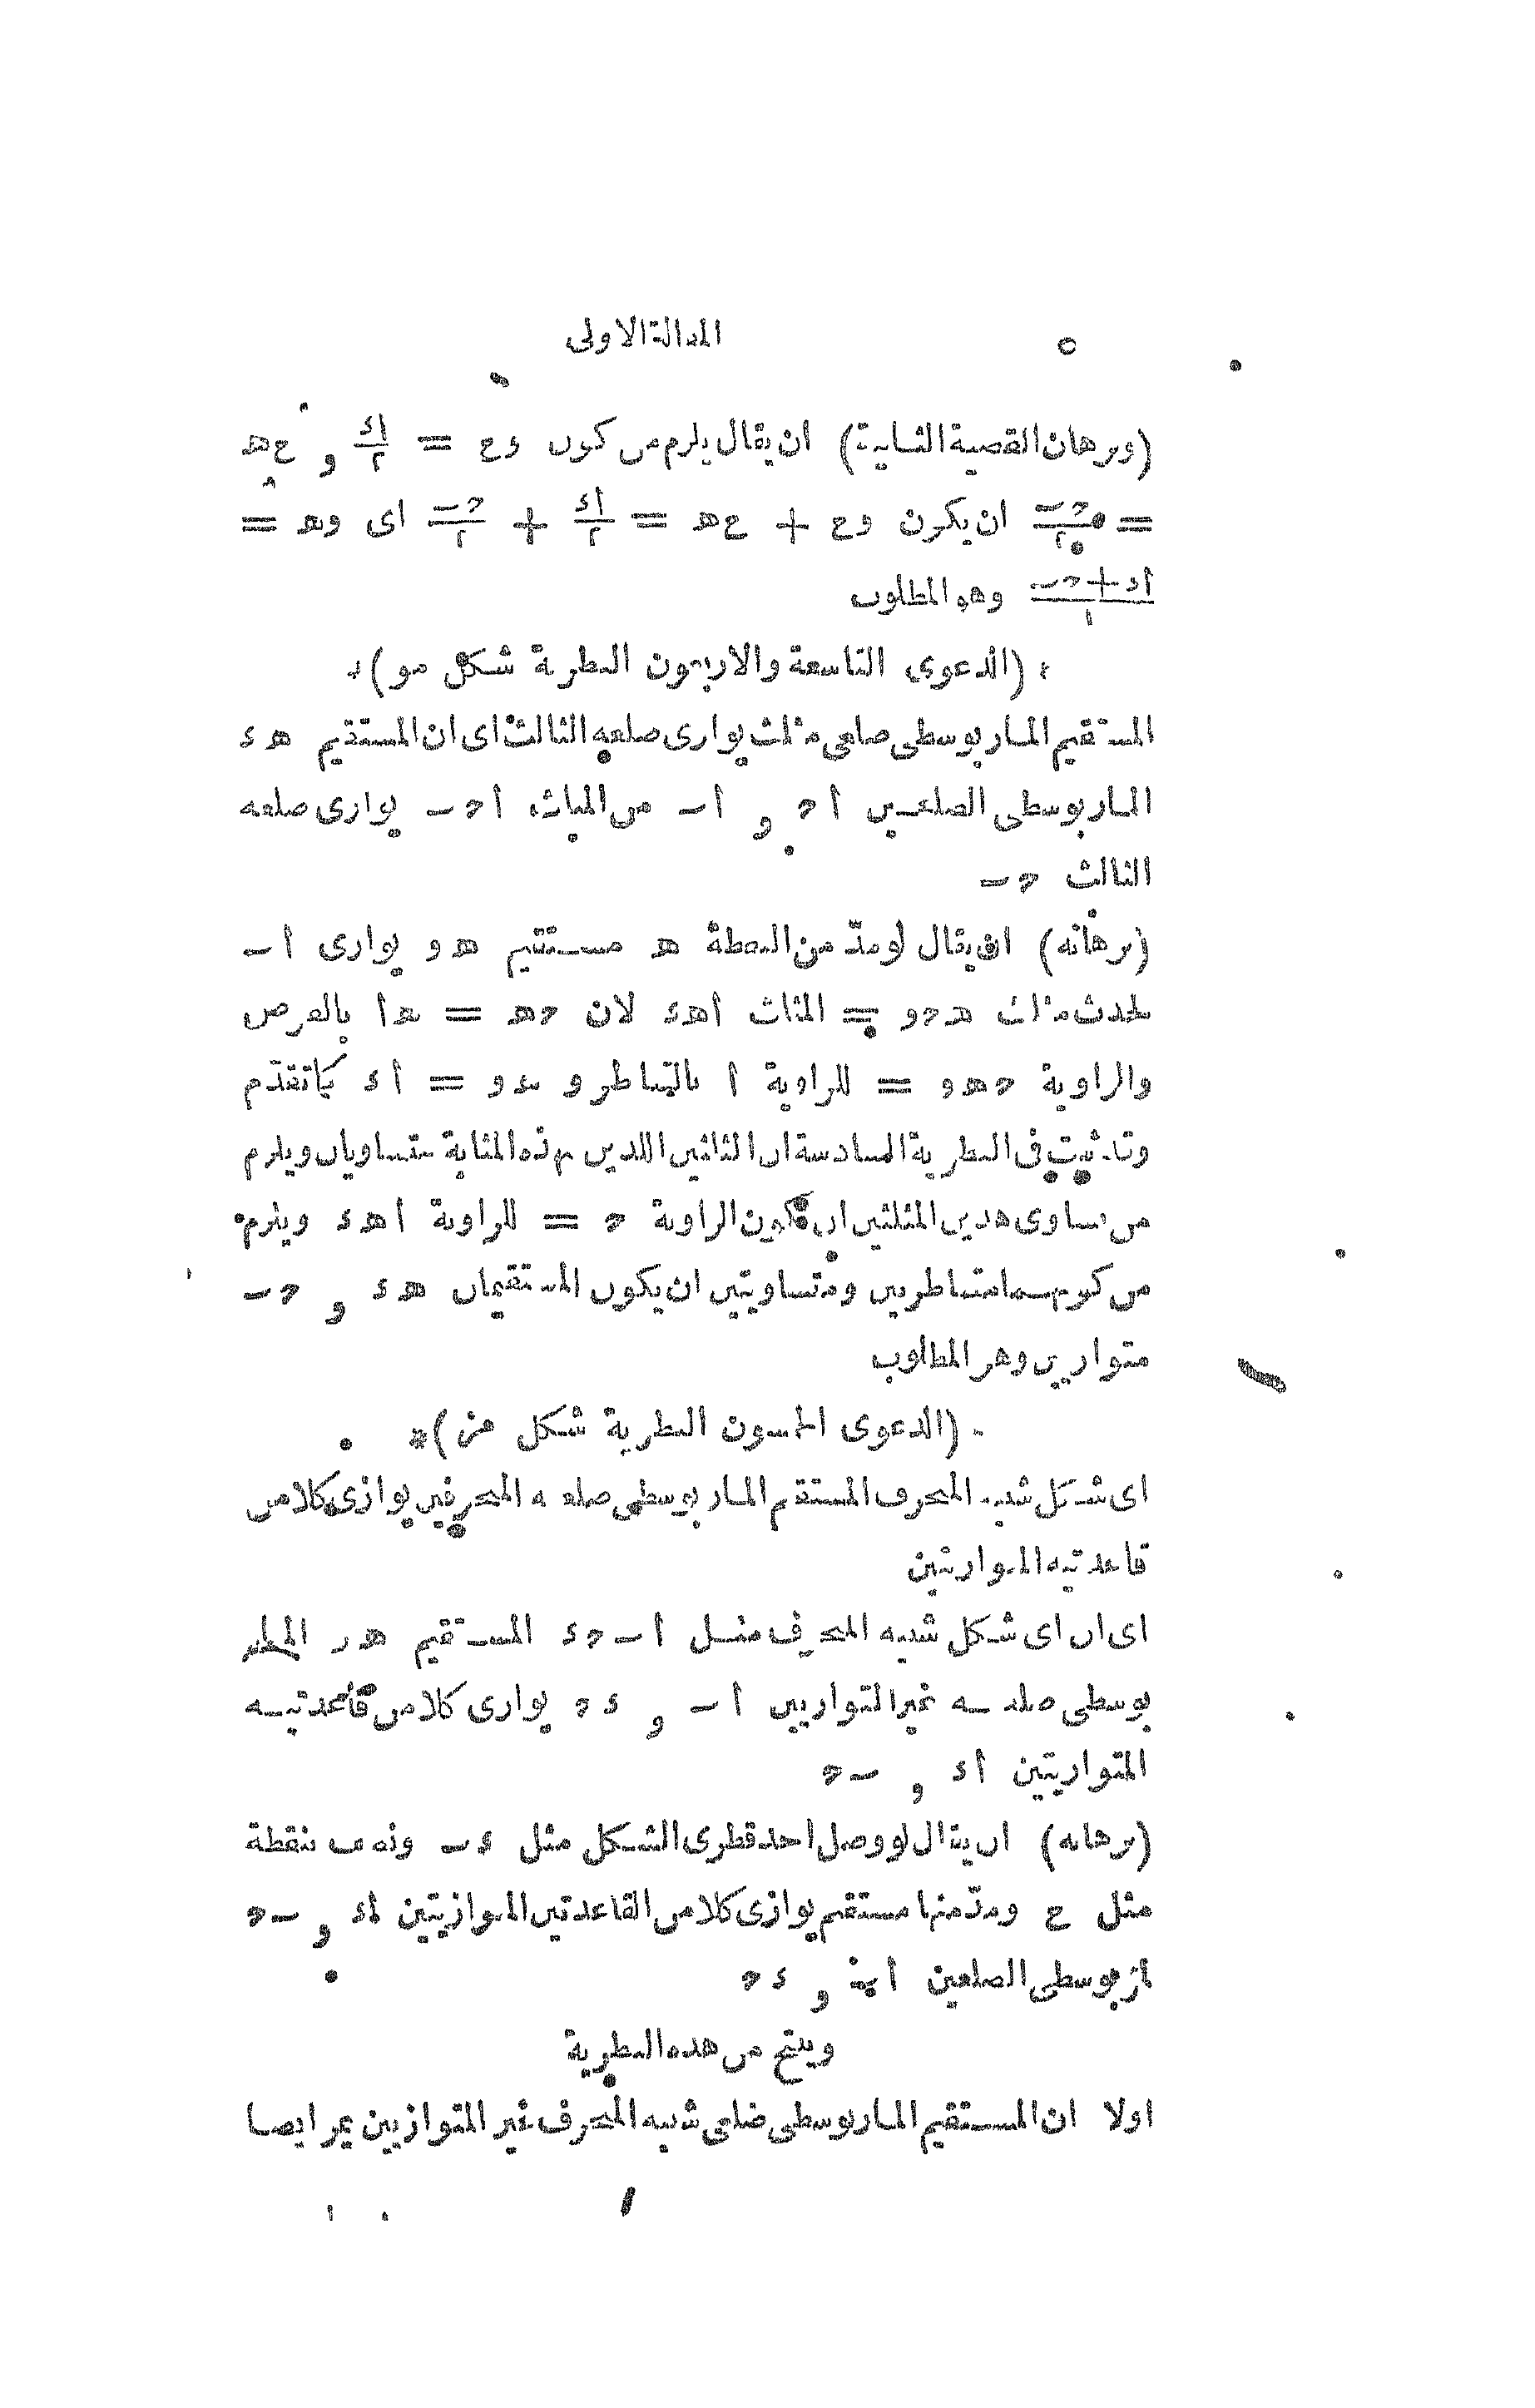 المقالة الاولى ٥
(وبرهان القضية الثانية) ان يقال يلزم من كون وح = اء/٢ و ح ه
= حـ/٢ ان يكون وح + ح ه = اء/٢ + حـ/٢ اى وه =
اء + حـ/٢ وهو المطلوب
(الدعوى التاسعة والاربعون النظرية شكل مو)
المستقيم المار بوسطى ضلعى مثلث يوازى ضلعه الثالث اى ان المستقيم ه ء
المار بوسطى الضلعين ا ح و ا ب من المثلث ا ح ب يوازى ضلعه
الثالث ح ب
(برهانه) ان يقال لو مدّ من النقطة ه مستقيم ه و يوازى ا ب
لحدث مثلث ه ح و = المثلث ا ه ء لان ح ه = ه ا بالفرض
والزاوية ح ه و = للزاوية ا بالتناظر و ه و = ا ء كما تقدّم
وقد ثبت فى النظرية السادسة ان المثلثين اللذين بهذه المثابة متساويان ويلزم
من تساوى هذين المثلثين ان تكون الزاوية ح = للزاوية ا ه ء ويلزم
من كونهما متناظرتين ومتساويتين ان يكون المستقيمان ه ء و ح ب
متوازيين وهو المطلوب
(الدعوى الخمسون النظرية شكل من)
اى شكل شبيه المنحرف المستقيم المار بوسطى ضلعيه المنحرفين يوازى كلا من
قاعدتيه المتوازيتين
اى ان اى شكل شبيه المنحرف مثل ا ب ح ء المستقيم ه ر المار
بوسطى ضلعيه غير المتوازيين ا ب و ء ح يوازى كلا من قاعدتيه
المتوازيتين ا ء و ب ح
(برهانه) ان يقال لو وصل احد قطرى الشكل مثل ء ب ونصف بنقطة
مثل ح ومدّ منها مستقيم يوازى كلا من القاعدتين المتوازيتين ا ء و ب ح
لمرّ بوسطى الضلعين ا ب و ء ح
وينتج من هذه النظرية
اولا ان المستقيم المار بوسطى ضلعى شبيه المنحرف غير المتوازيين يمر ايضا